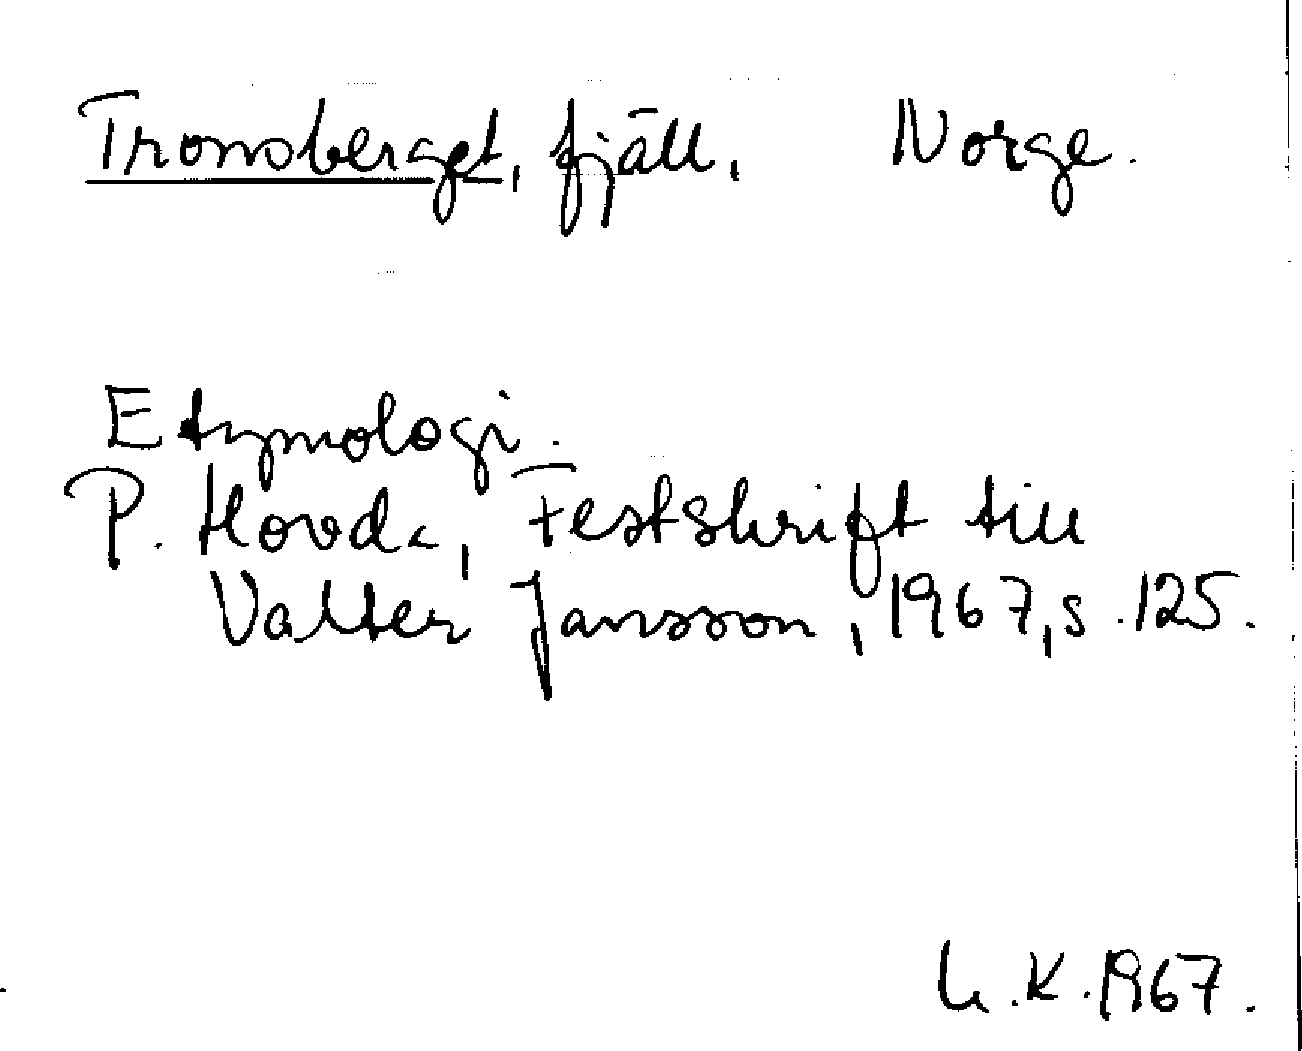 Tronsberget, fjäll, Norge.
Etymologi.
P. Hovda, Festskrift till
Valter Jansson, 1967, s. 125.
L.K. 1967.